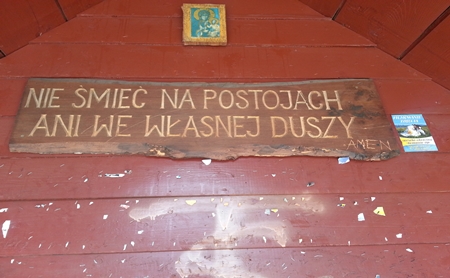 NIE ŚMIEĆ NA POSTOJACH
ANI WE WŁASNEJ DUSZY
AMEN